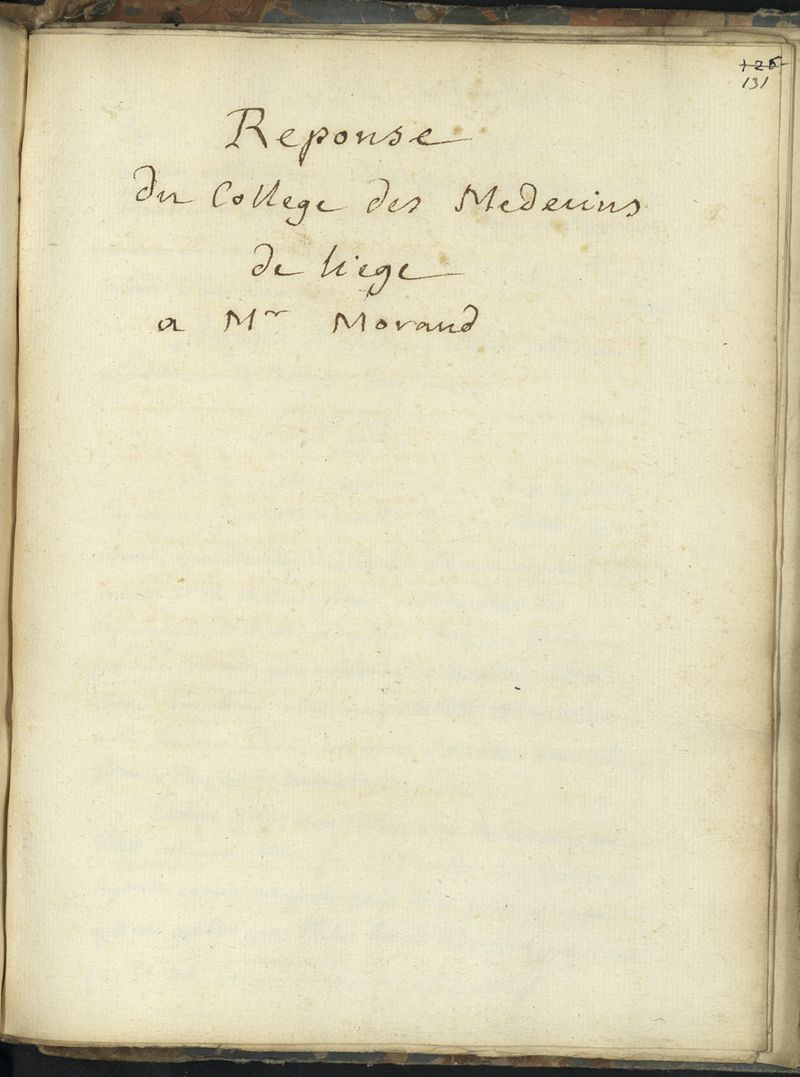 125
131
Reponse
du College des Medecins
de liege
a Mr Morand